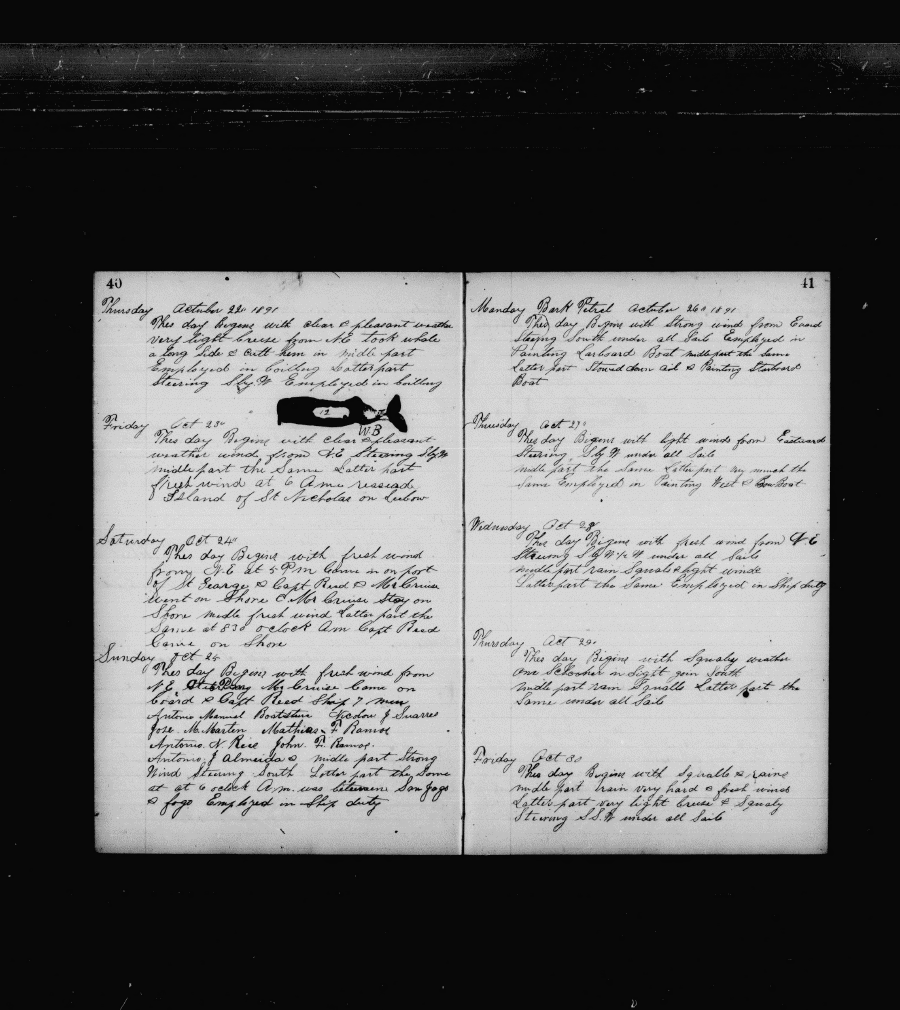 40
Thursday October 22 1891
This day Begins with clear & pleasant weather
very light breise from NE took whale
a long Side & cutt him in midle part
Employed in boilling Latter part
Steering S by W Employed in boilling
12
W.B
Friday Oct 23
This day Begins with clear & pleasant
weather winds from N.E Steering S by W
midle part the Same Latter part
fresh wind at 6 A.m.
Island of St Nicholas on Leebow
Saturday Oct 24
This day Begins with fresh wind
from N.E at 5 P.M Came in on port
of St George & Capt Reed & Mr Cruise
went on Shore & Mr Cruise Stay on
Shore midle fresh wind Latter part the
Same at 8 30 oclock A.m Capt Reed
Came on Shore
Sunday Oct 25
This day Begins with fresh wind from
N.E. Mr Cruise Came on
board & Capt Reed Ship 7 men
Antonio Manuel Boatsture Nicolou J Suarres
Jose M. Marten Mathias F Ramos
Antonio N. Reis John F. Ramos.
Antonio J Almeida & midle part Strong
Wind Steering South Latter part the Same
at at 6 oclock A.m. was between San Jago
& fogo Employed in Ship duty
41
Monday Bark Petrel October 26 1891
This day Begins with Strong winds from Eward
Steering South under all Sails Employed in
Painting Larboard Boat midle part the Same
Latter part Stowed down oil & Painting Starboard
Boat
Oct 27
This day Begins with light winds from Eastward
Steering S by W under all Sails
midle part the Same Latter part very much the
Same Employed in Painting West & Bow Boat
Wednesday Oct 28
This day Begins with fresh wind from N E
Steering S by W ½ W under all Sails
midle part rain Squals & light winds
Latter part the Same Employed in Ship duty
Thursday Oct 29
This day Bigins with Squaly weather
one Schooner in Sight goin South
midle part rain Squalls Latter part the
Same under all Sails
Friday Oct 30
This day Begins with Squalls & rains
midle part rain very hard & fresh winds
Latter part very light breise & Squaly
Steering S.S.W under all Sails